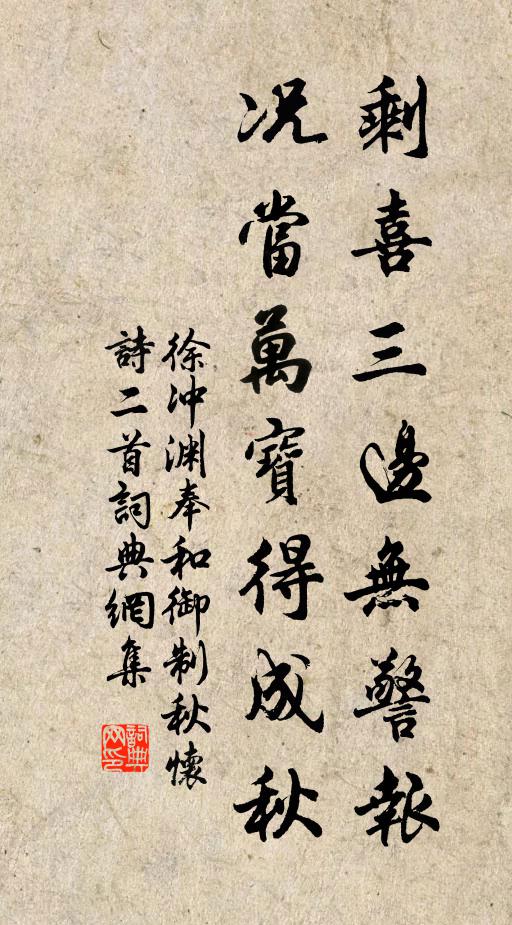 剩喜三邊無警報
况當萬寶得成秋
徐冲渊奉和御制秋懷
詩二首詞典網集
詞典网印